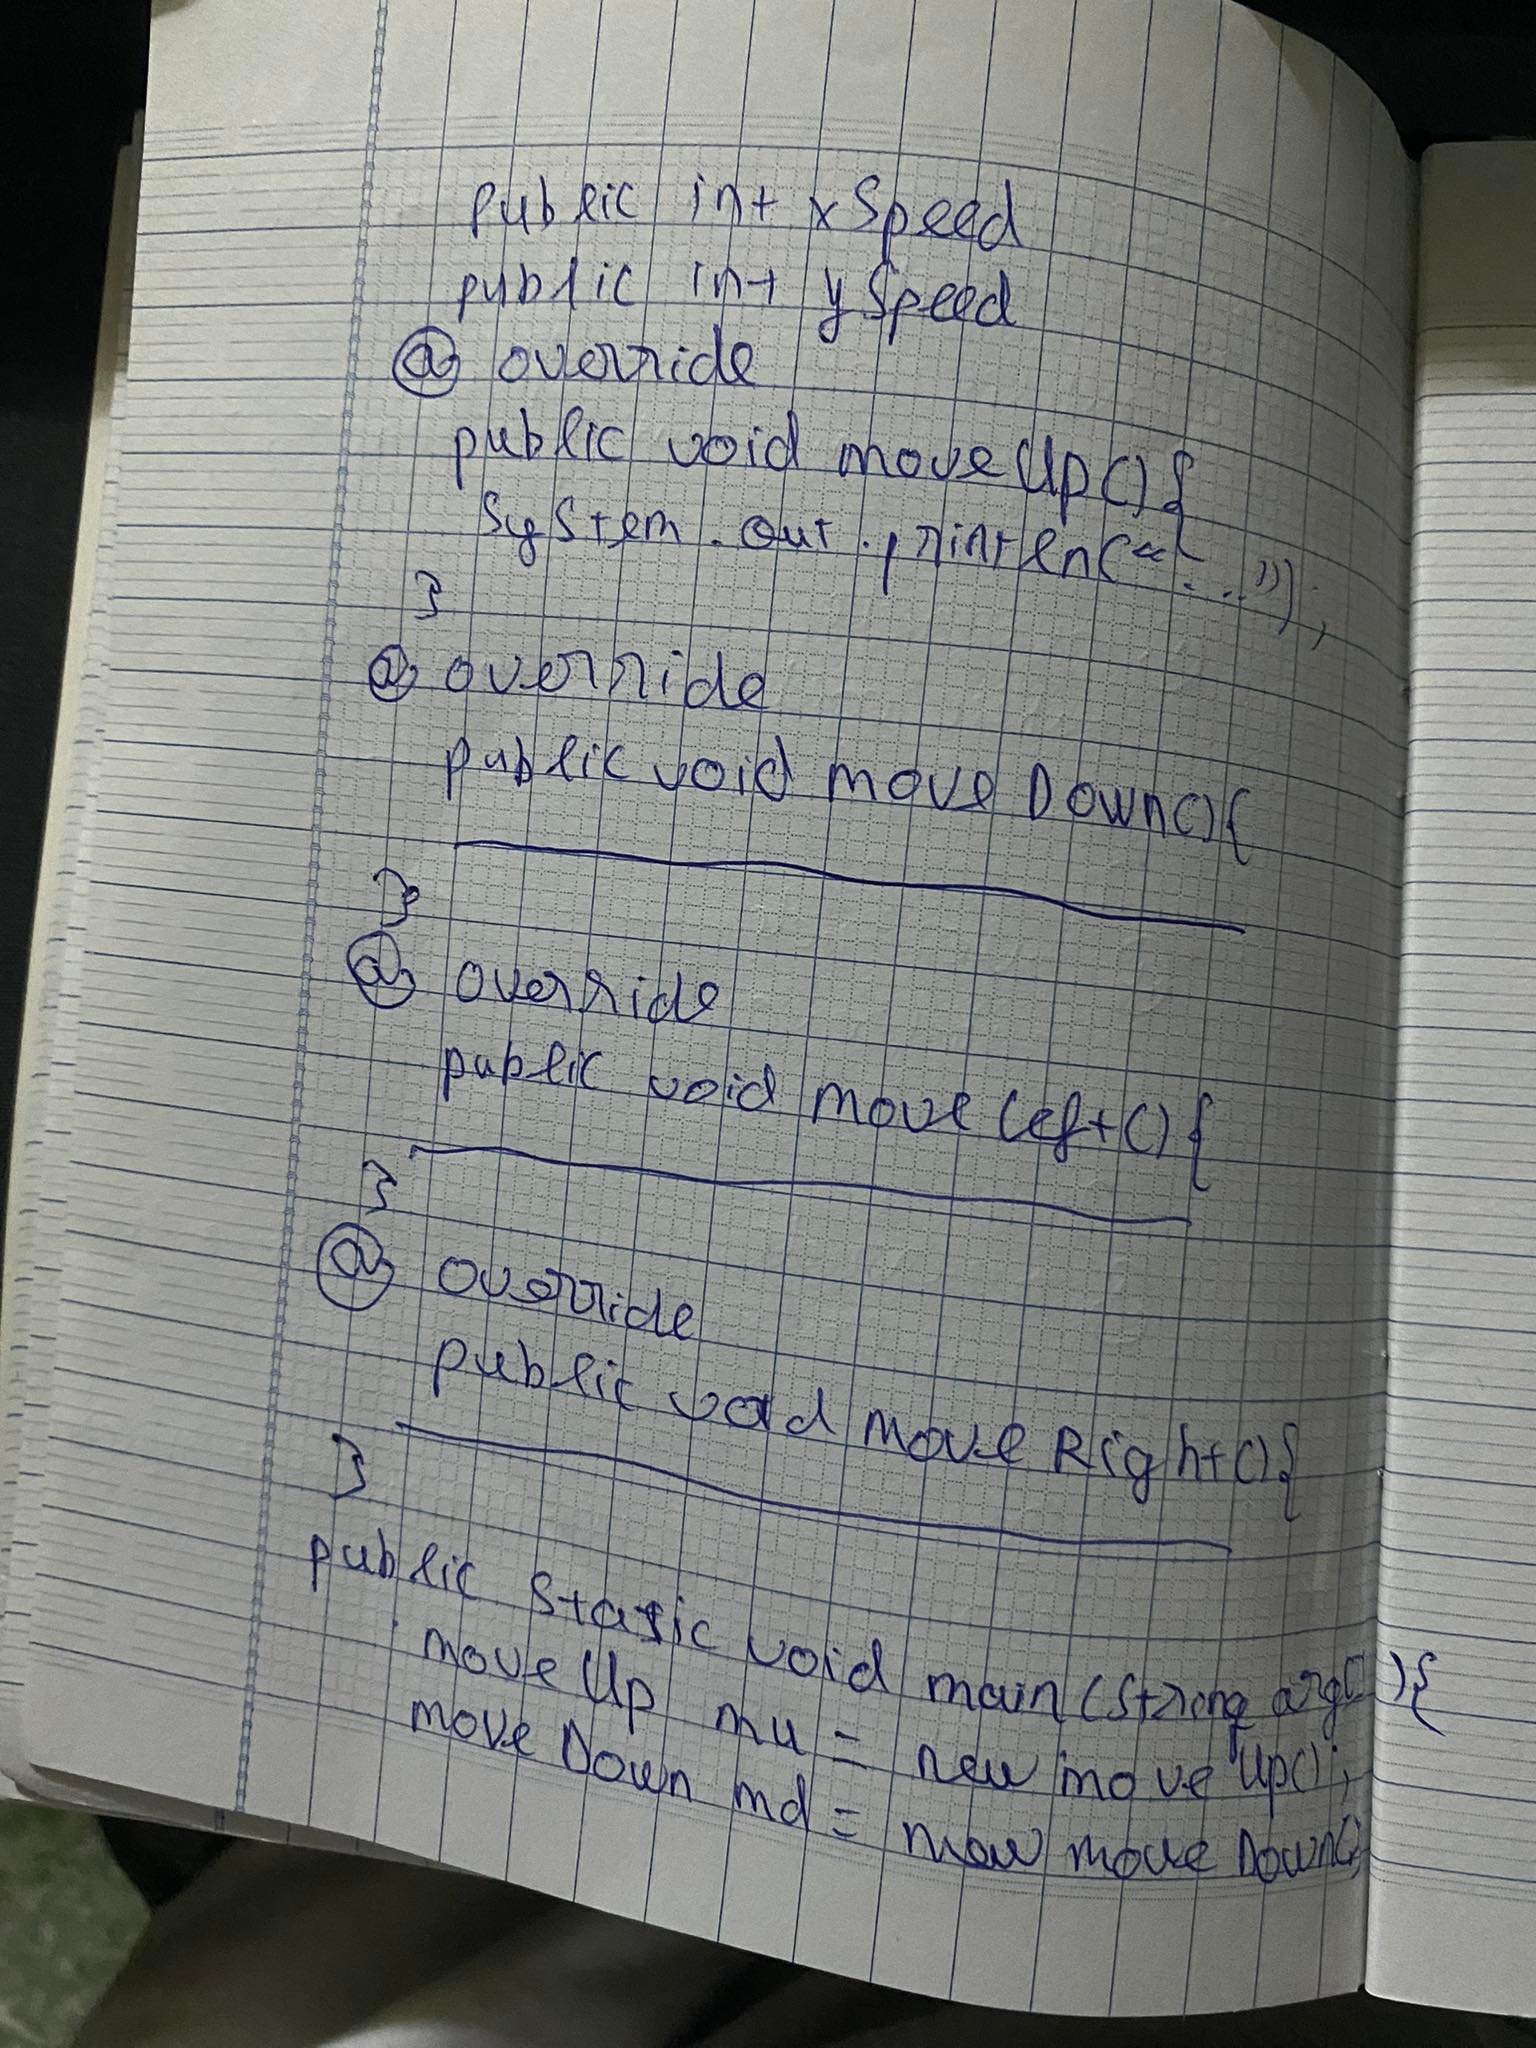 public int xSpeed
public int ySpeed
@ override
public void moveUp(){
System.out.println("...");
}
@ override
public void move Down(){
}
@ override
public void move Left(){
}
@ override
public void move Right(){
}
public static void main(String arg[]){
moveUp mu = new moveUp();
move Down md = new move Down();